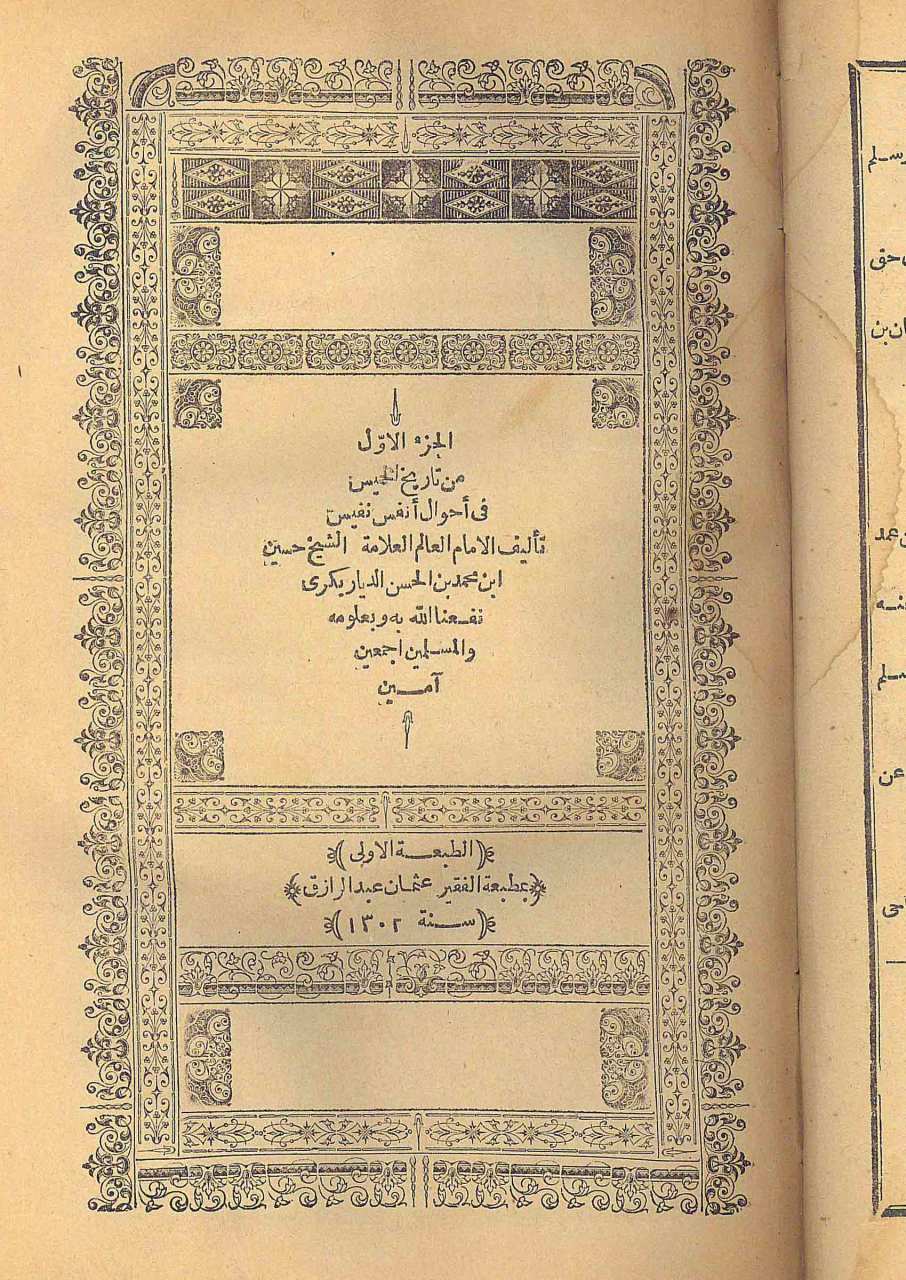 الجزء الاوّل
من تاريخ الخميس
فى أحوال أنفس نفيس
تأليف الامام العالم العلامة الشيخ حسين
ابن محمد بن الحسن الديار بكرى
نفعنا الله به وبعلومه
والمسلمين اجمعين
آمين
(الطبعة الاولى)
﴿بمطبعة الفقير عثمان عبد الرازق﴾
(سنة ١٣٠٢)
حق
عن